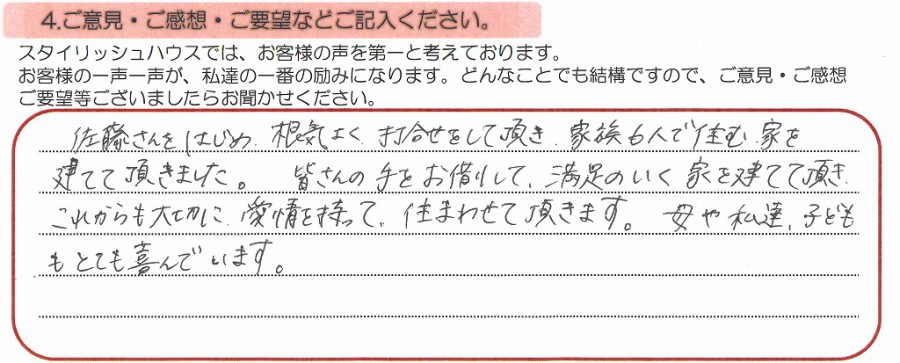 4.ご意見・ご感想・ご要望などご記入ください。
スタイリッシュハウスでは、お客様の声を第一と考えております。
お客様の一声一声が、私達の一番の励みになります。どんなことでも結構ですので、ご意見・ご感想
ご要望等ございましたらお聞かせください。
佐藤さんをはじめ 根気よく 打合せをして頂き 家族6人で住む 家を
建てて頂きました。 皆さんの手をお借りして、満足のいく 家を建てて頂き
これからも大切に 愛情を持って、住まわせて頂きます。 母や私達、子ども
もとても喜んでいます。